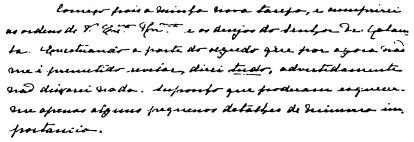 Começo pois a minha nova tarefa, e cumprirei
as ordens de V. Ex.ª Rev.ma e os desejos do Senhor de Calam
ba. Exceptuando a parte do segredo que por agora não
me é permettido revelar, direi tudo, advertidamente
não deixarei nada. Supponho que poderam esquecer-
me apenas alguns pequenos detalhes de minima im-
portancia.